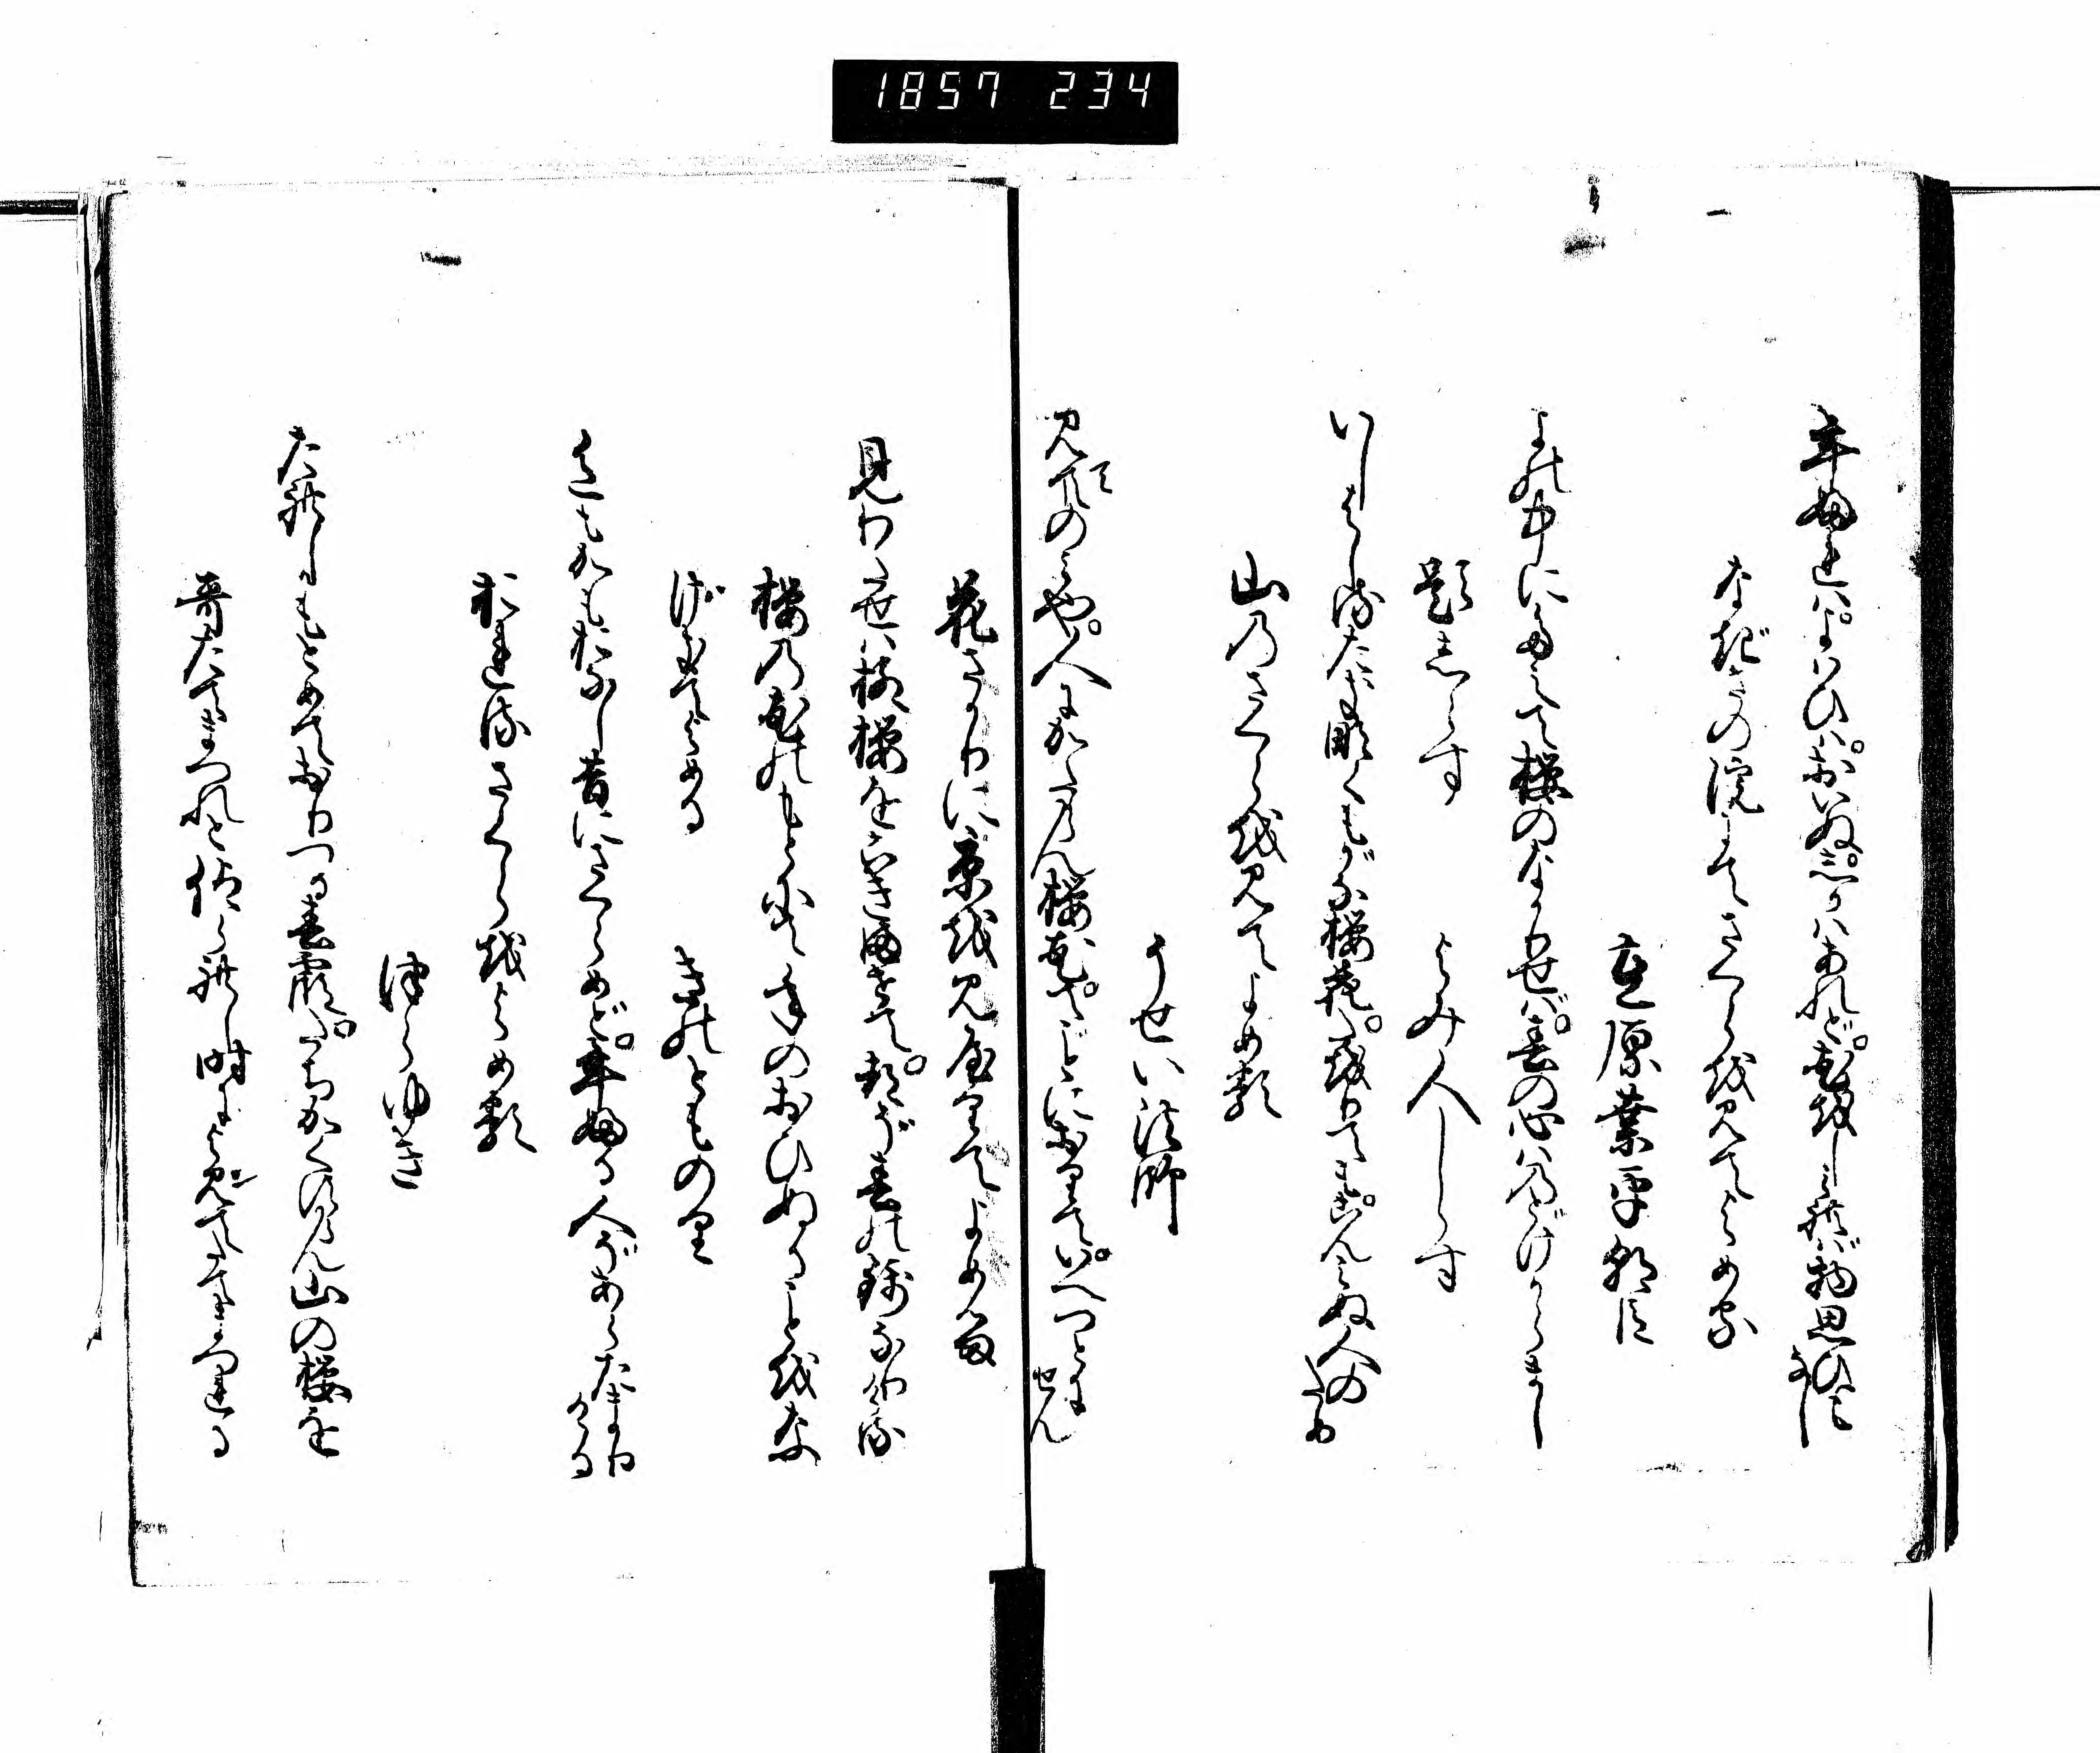 1857 234
年ふればよはひは。おいぬ。しかはあれど。花をし見れば物思ひもなし
なぎさの院にてさくらを見てよめる
在原業平朝臣
よの中にたえて桜のなかりせば。春の心はのどけからまし
題しらず よみ人しらす
いしばしる。たきなくもがな桜花。たをりてもこん。見ぬ人のため
山のさくらを見てよめる
そせい法師
見てのみや。人にかたらん桜花。てごとにおりて。いへづとにせん
花さかりに京を見やりてよめる
見わたせは柳桜をこきまぜて。都ぞ春の錦なりける
桜の花のもとにて年のおひぬることをな
げきてよめる きのとものり
色も香もおなし昔にさくらめど。年ふる人ぞあらたまりける
おれるさくらをよめる
つらゆき
たれしかもとめており つる春霞。たちかくすらん山の桜を
哥たてまつれと仰られし時によみてたてまつれる